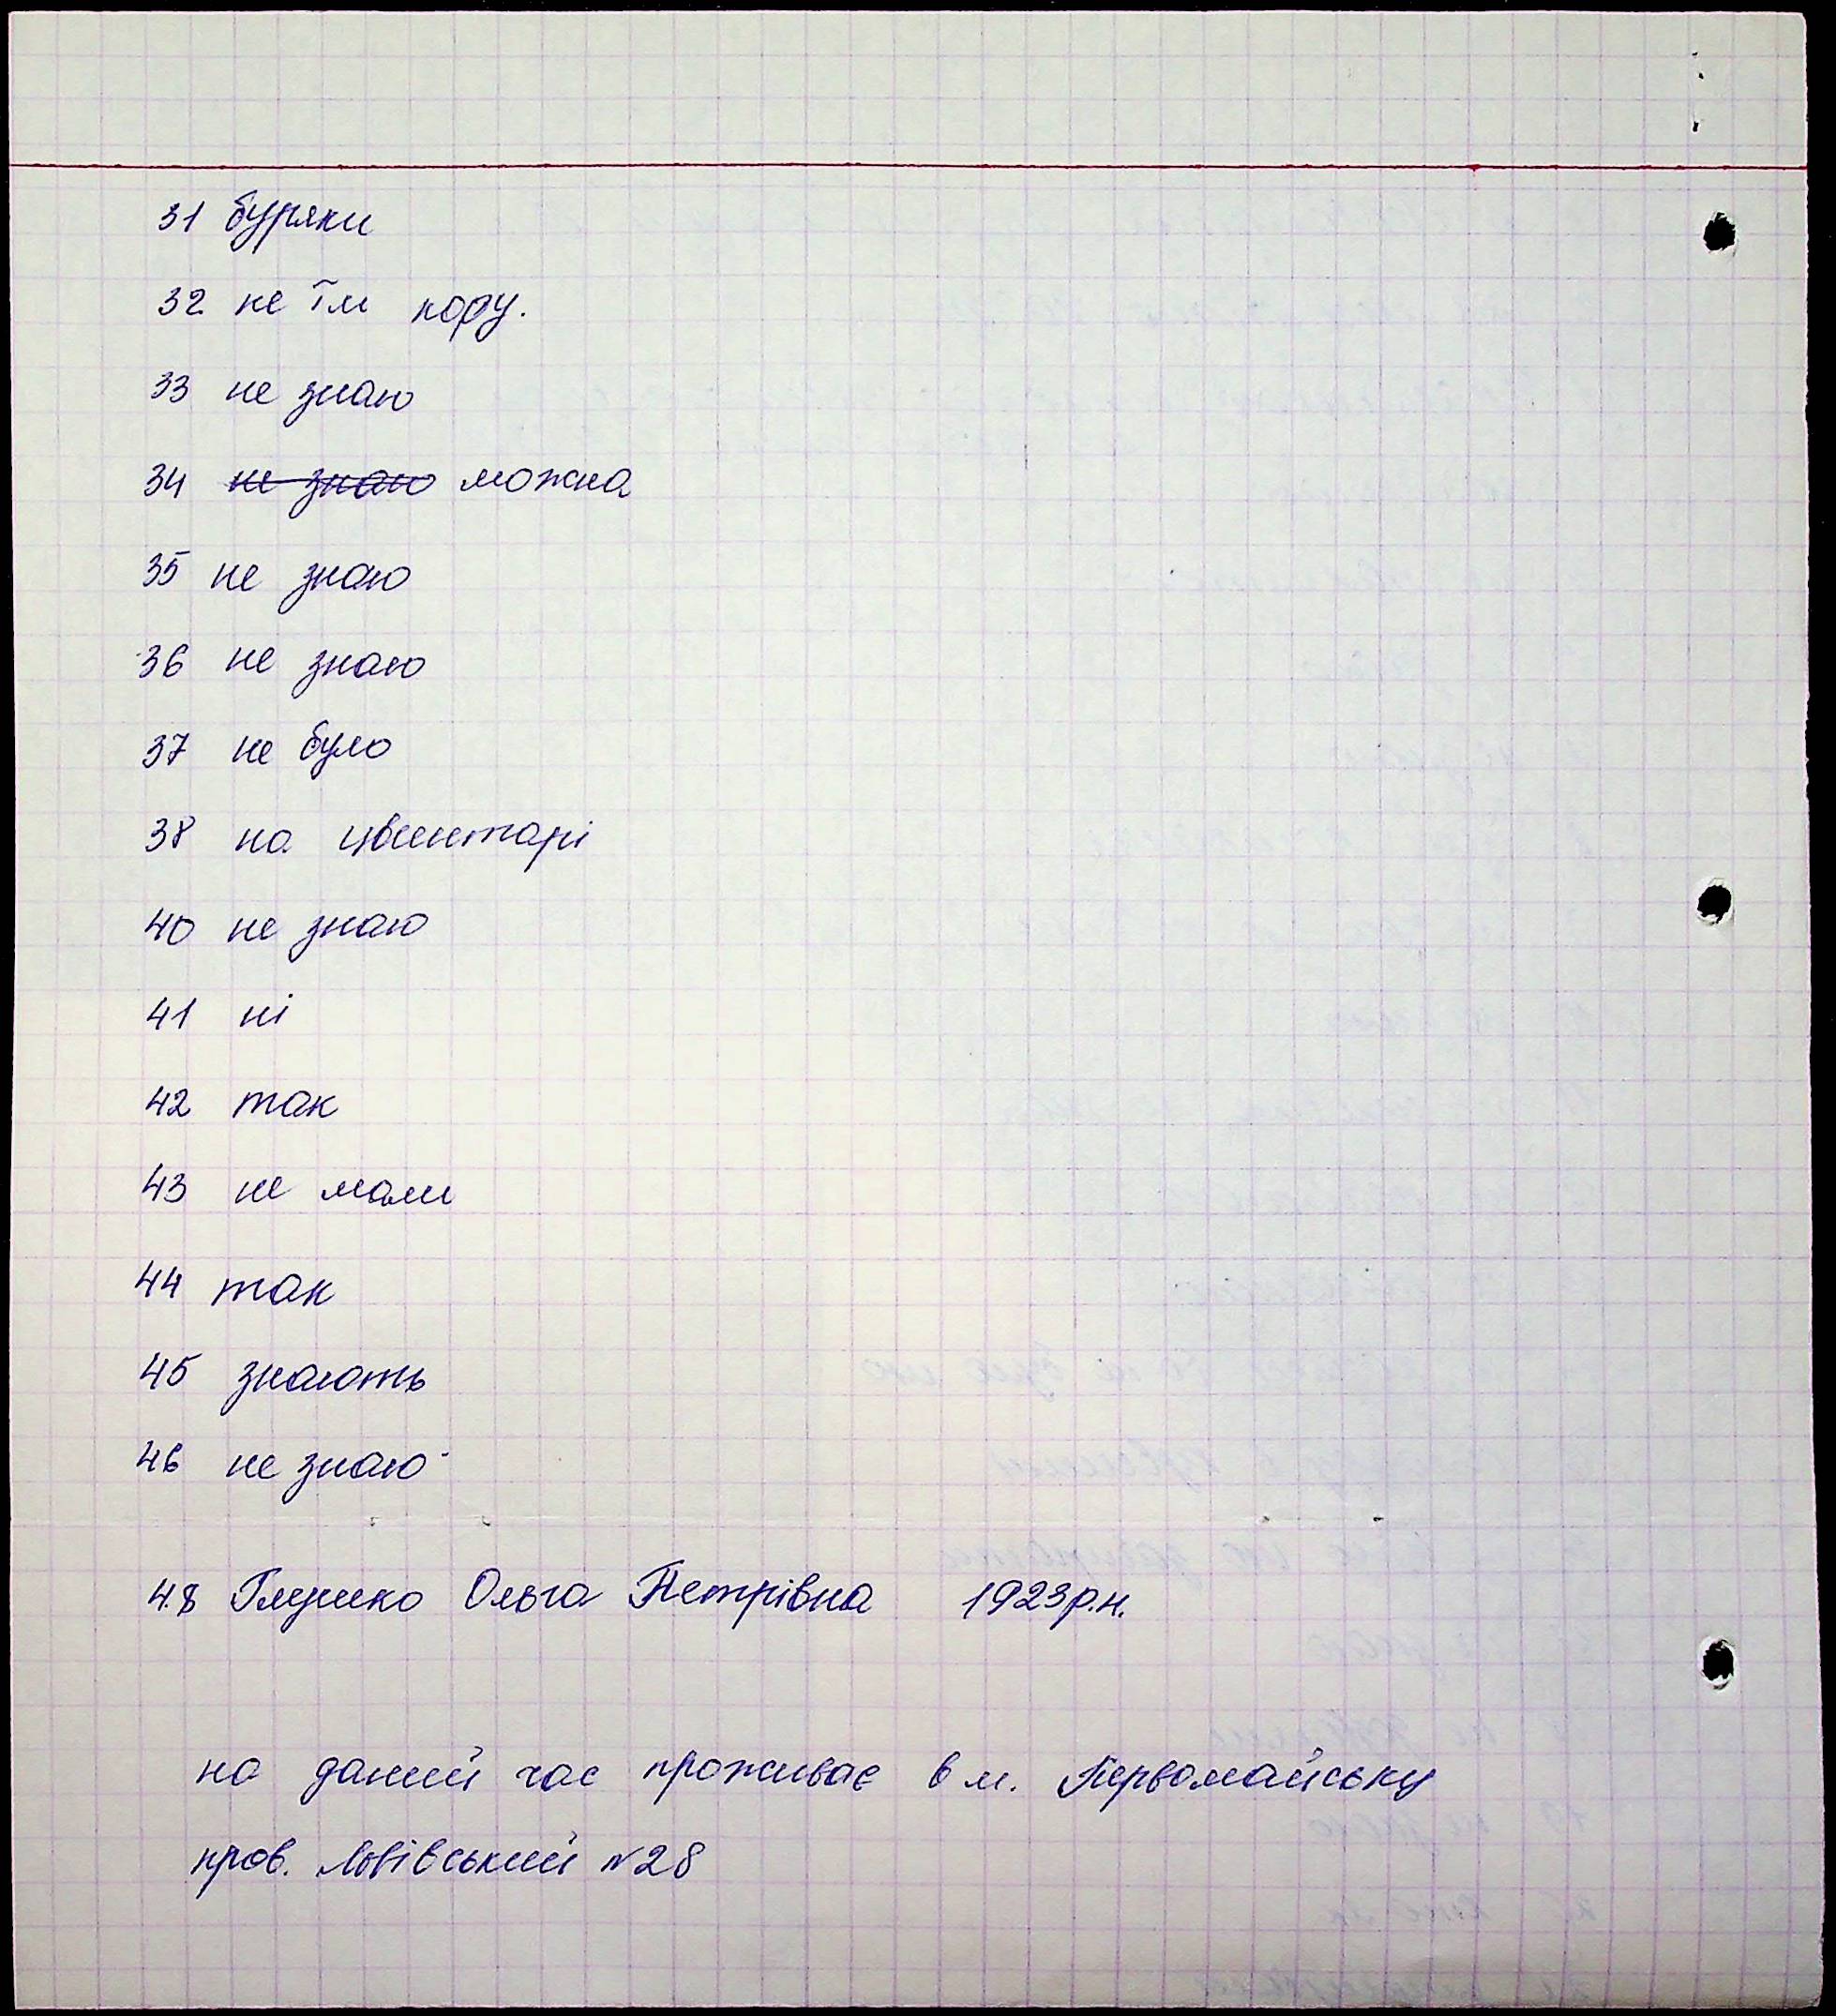 31 буряки
32 не їм кору.
33 не знаю
34 не знаю можна
35 не знаю
36 не знаю
37 не було
38 на цвинтарі
40 не знаю
41 ні
42 так
43 не мали
44 так
45 знають
46 не знаю
48 Глушко Ольга Петрівна 1923р.н.
на даний час проживає в м. Первомайську
пров. Львівський №28